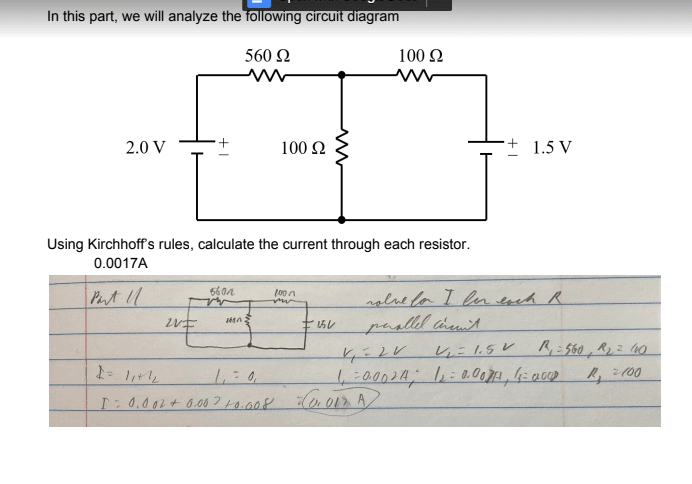 In this part, we will analyze the following circuit diagram
560 Ω
100 Ω
2.0 V
+
100 Ω
+
1.5 V
Using Kirchhoff's rules, calculate the current through each resistor.
0.0017A
Part II
560Ω
100Ω
solve for I for each R
2V
1.5V
parallel circuit
V₁ = 2V V₂ = 1.5 V R₁ = 560, R₂ = 100
I = I₁ + I₂ I₁ = 0.002A; R₃ = 100
I = 0.002 + 0.007 + 0.008